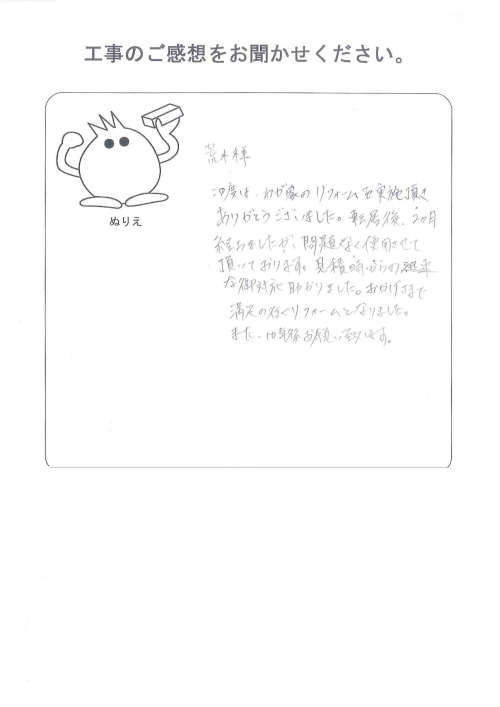 工事のご感想をお聞かせください。
ぬりえ
荒木様
この度は、わが家のリフォームを実施頂き
ありがとうございました。転居後、2ヵ月
経ちましたが、問題なく使用させて
頂いております。見積時からの迅速
な御対応 助かりました。おかげさまで
満足の行くリフォームとなりました。
また、10年後お願い致します。